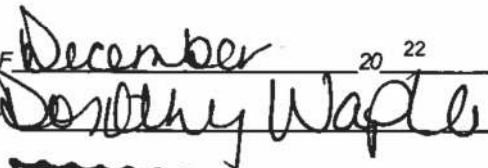 F December 20 22
Dorothy Waple